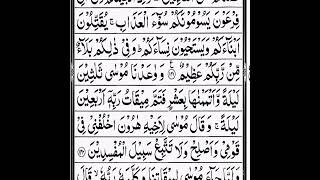 فِرۡعَوۡنَ يَسُوۡمُوۡنَكُمۡ سُوۡٓءَ الۡعَذَابِ ۚ يُقَتِّلُوۡنَ
اَبۡنَآءَكُمۡ وَيَسۡتَحۡيُوۡنَ نِسَآءَكُمۡ ؕ وَفِىۡ ذٰلِكُمۡ بَلَآءٌ
مِّنۡ رَّبِّكُمۡ عَظِيۡمٌ ۞ وَوٰعَدۡنَا مُوۡسٰى ثَلٰثِيۡنَ
لَيۡلَةً وَّاَتۡمَمۡنٰهَا بِعَشۡرٍ فَتَمَّ مِيۡقَاتُ رَبِّهٖۤ اَرۡبَعِيۡنَ
لَيۡلَةً ۚ وَقَالَ مُوۡسٰى لِاَخِيۡهِ هٰرُوۡنَ اخۡلُفۡنِىۡ فِىۡ
قَوۡمِىۡ وَاَصۡلِحۡ وَلَا تَتَّبِعۡ سَبِيۡلَ الۡمُفۡسِدِيۡنَ ۞
وَلَمَّا جَآءَ مُوۡسٰى لِمِيۡقَاتِنَا وَكَلَّمَهٗ رَبُّهٗ ۙ قَالَ